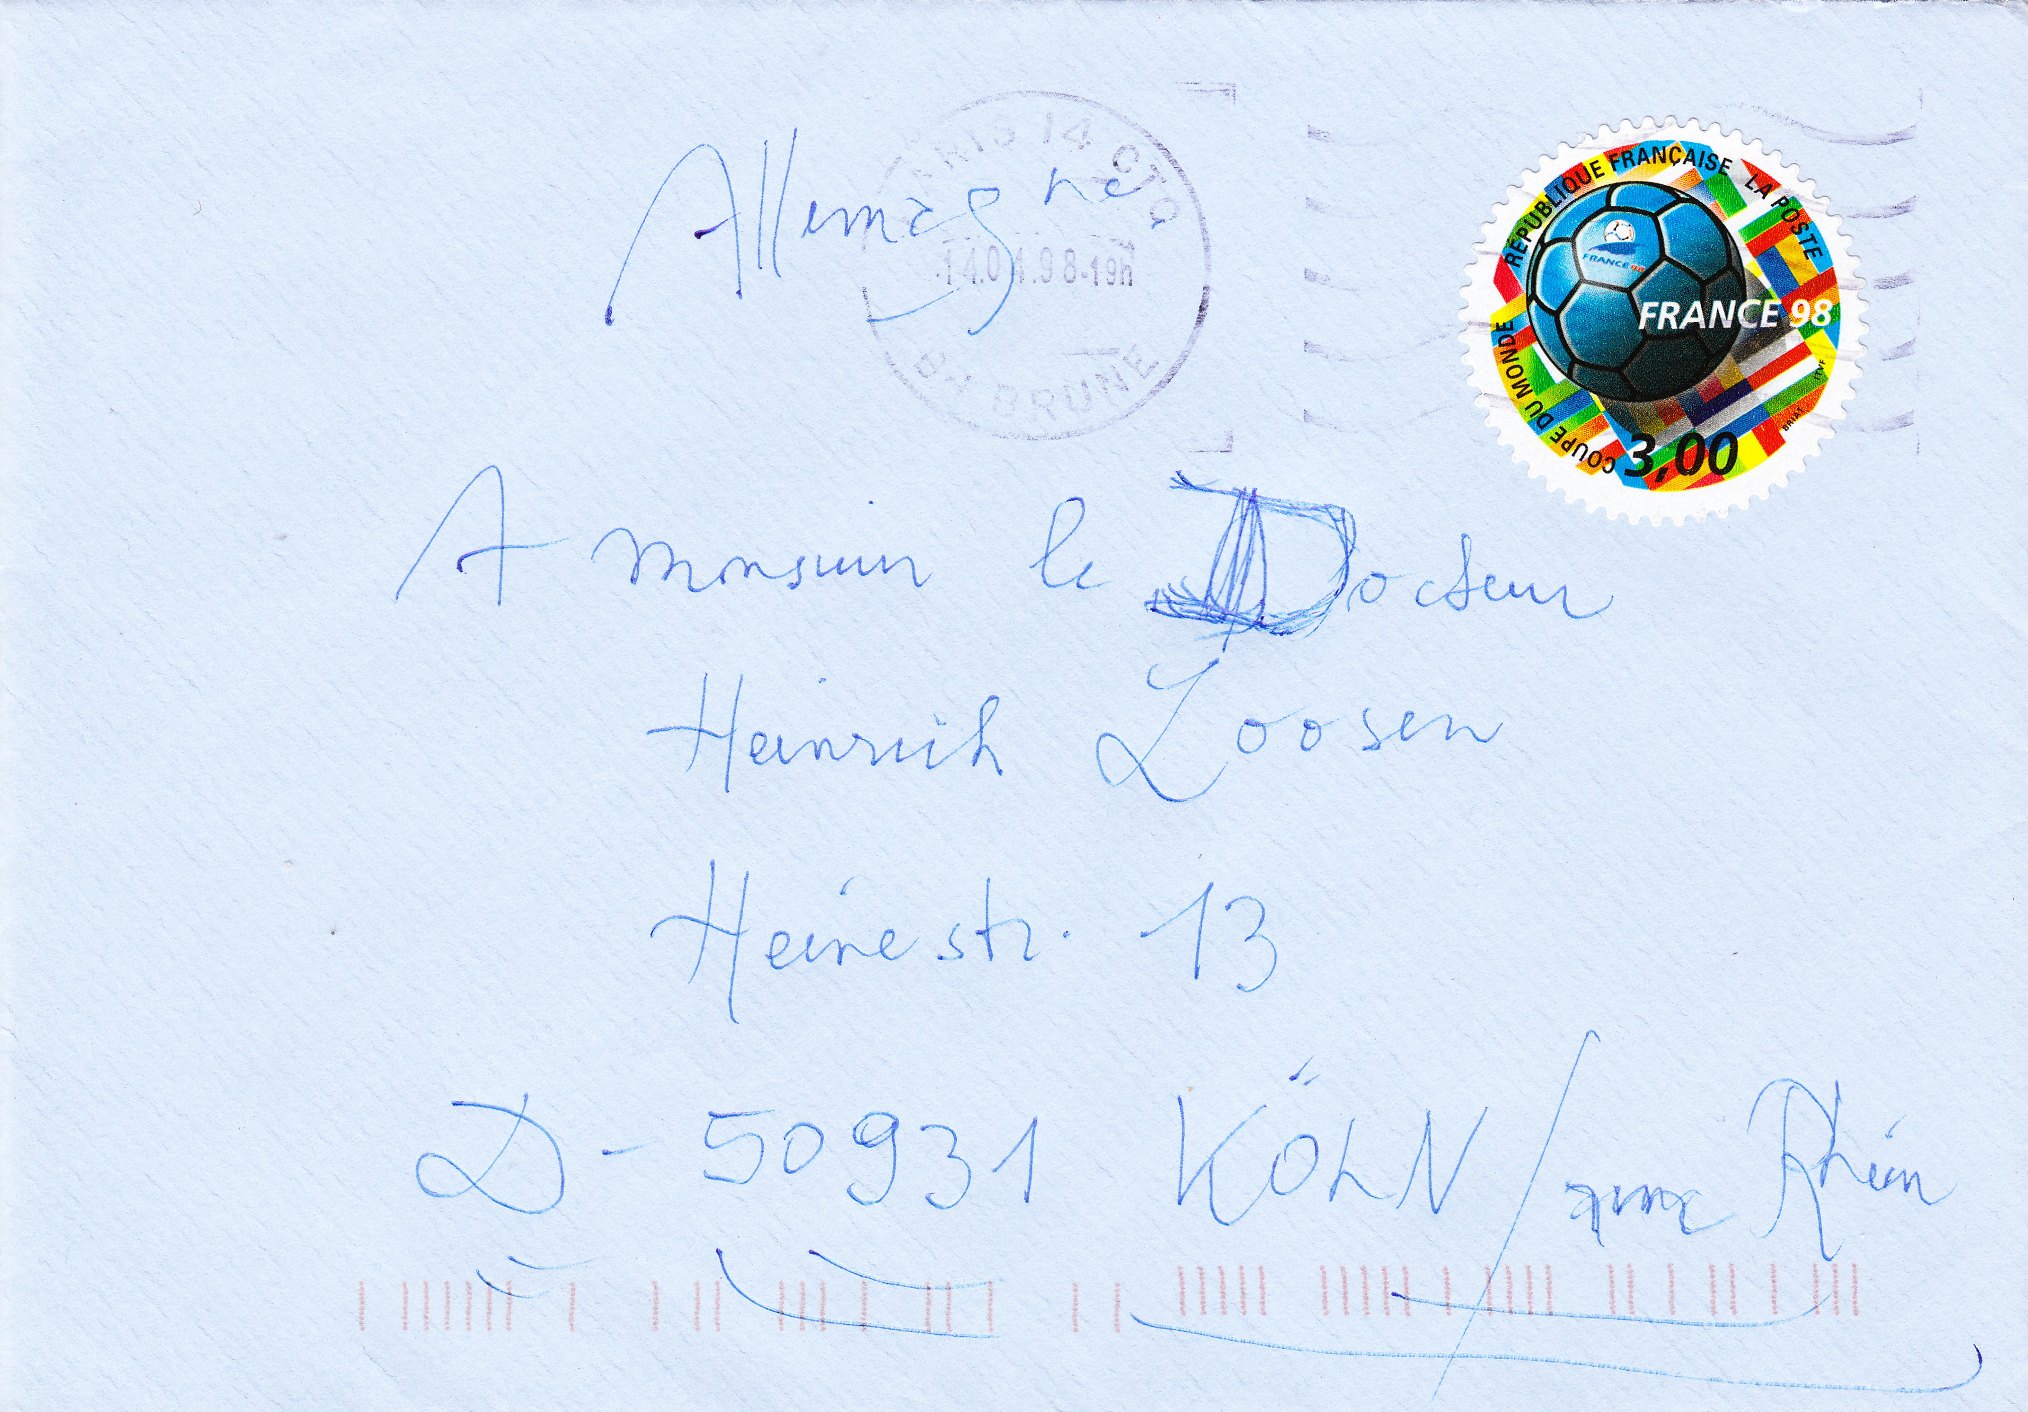 PARIS 14 CTC
14.0 .98-19h
BRUNE
RÉPUBLIQUE FRANÇAISE LA POSTE
FRANCE 98
FRANCE 98
COUPE DU MONDE
3,00
BRIAT
ITVF
Allemagne
A Monsieur le Docteur
Heinrich Loosen
Heinestr. 13
D-50931 KÖLN/ Rhein